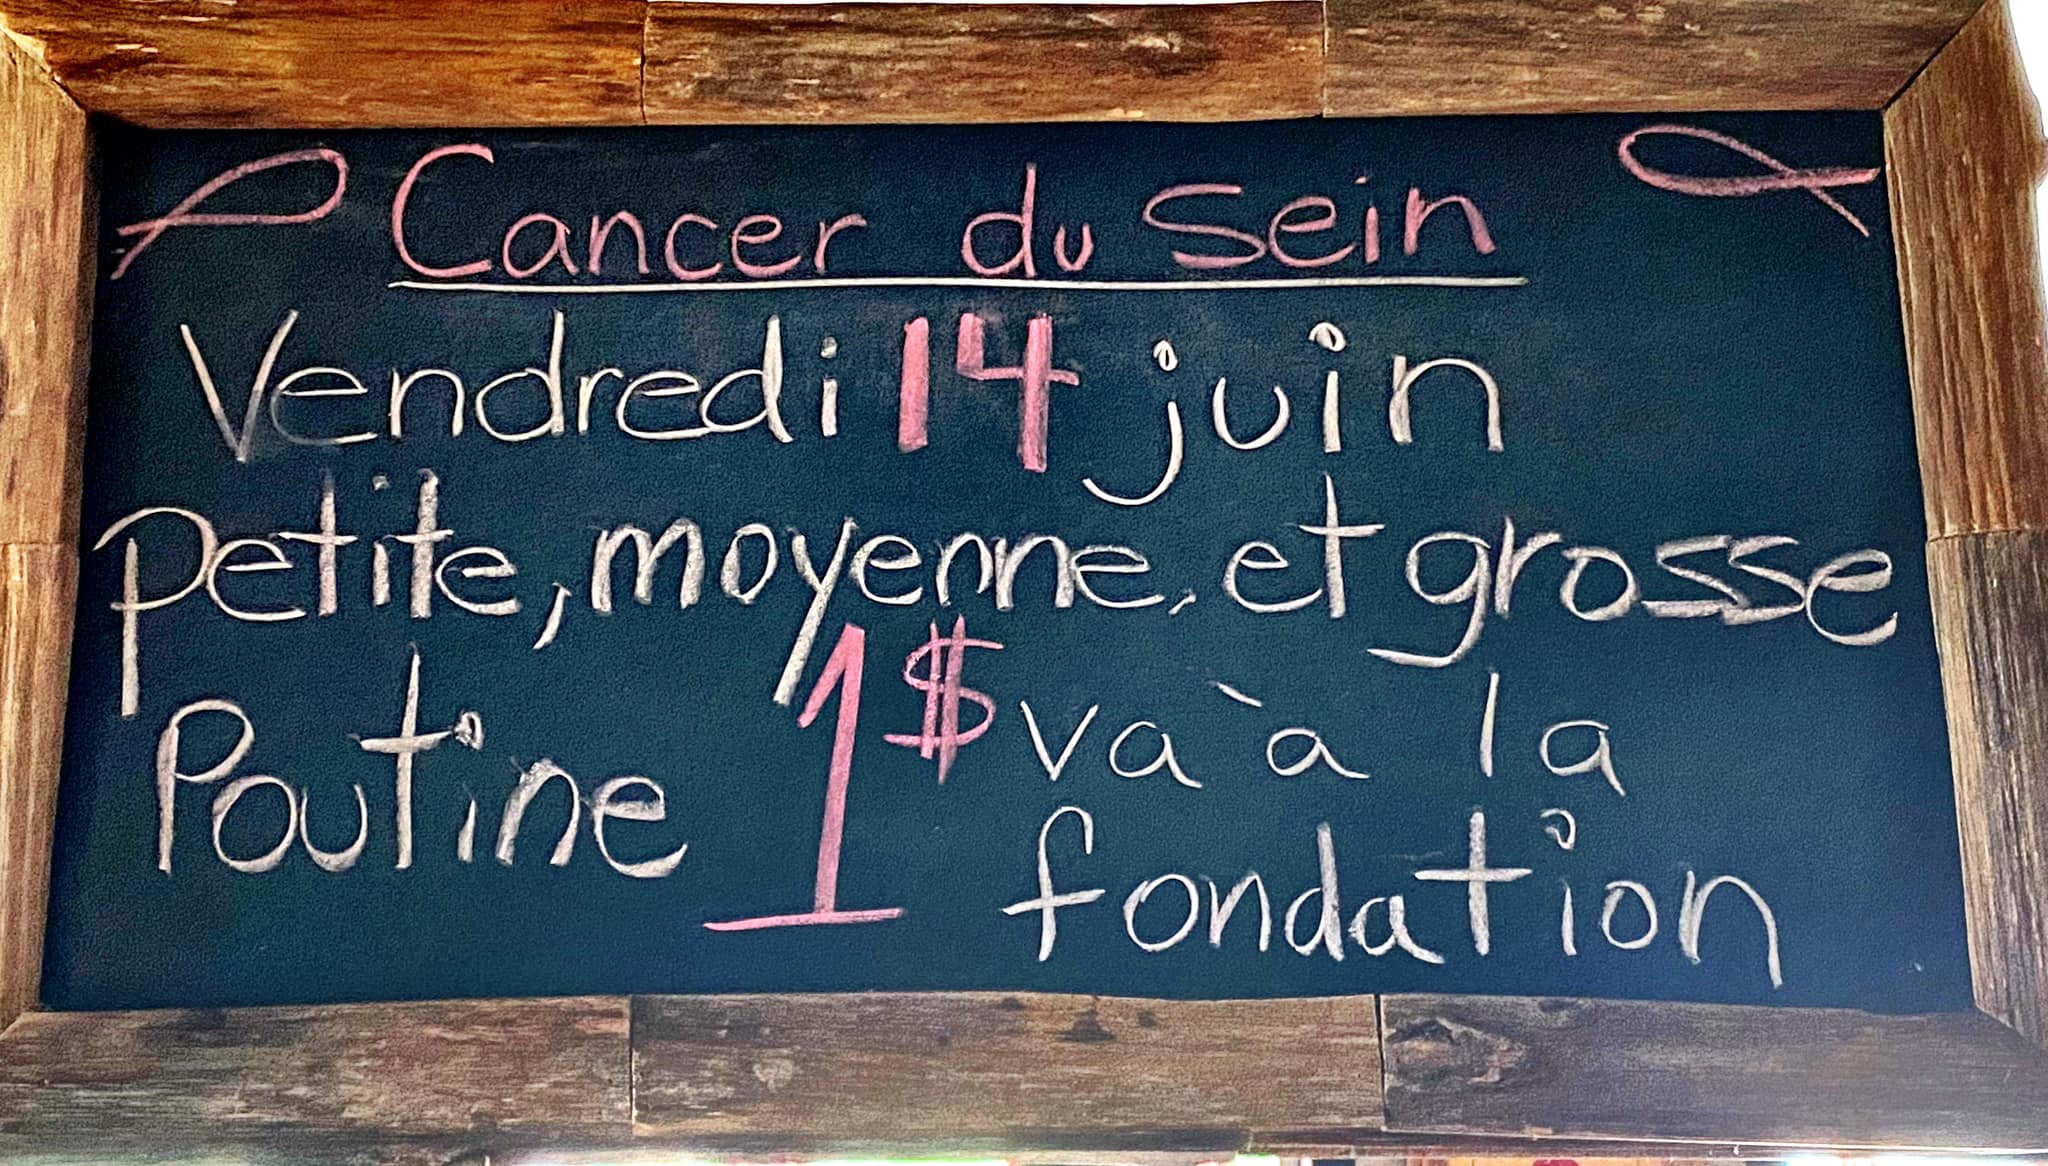 Cancer du sein
Vendredi 14 juin
petite, moyenne, et grosse
Poutine 1$ va à la
fondation